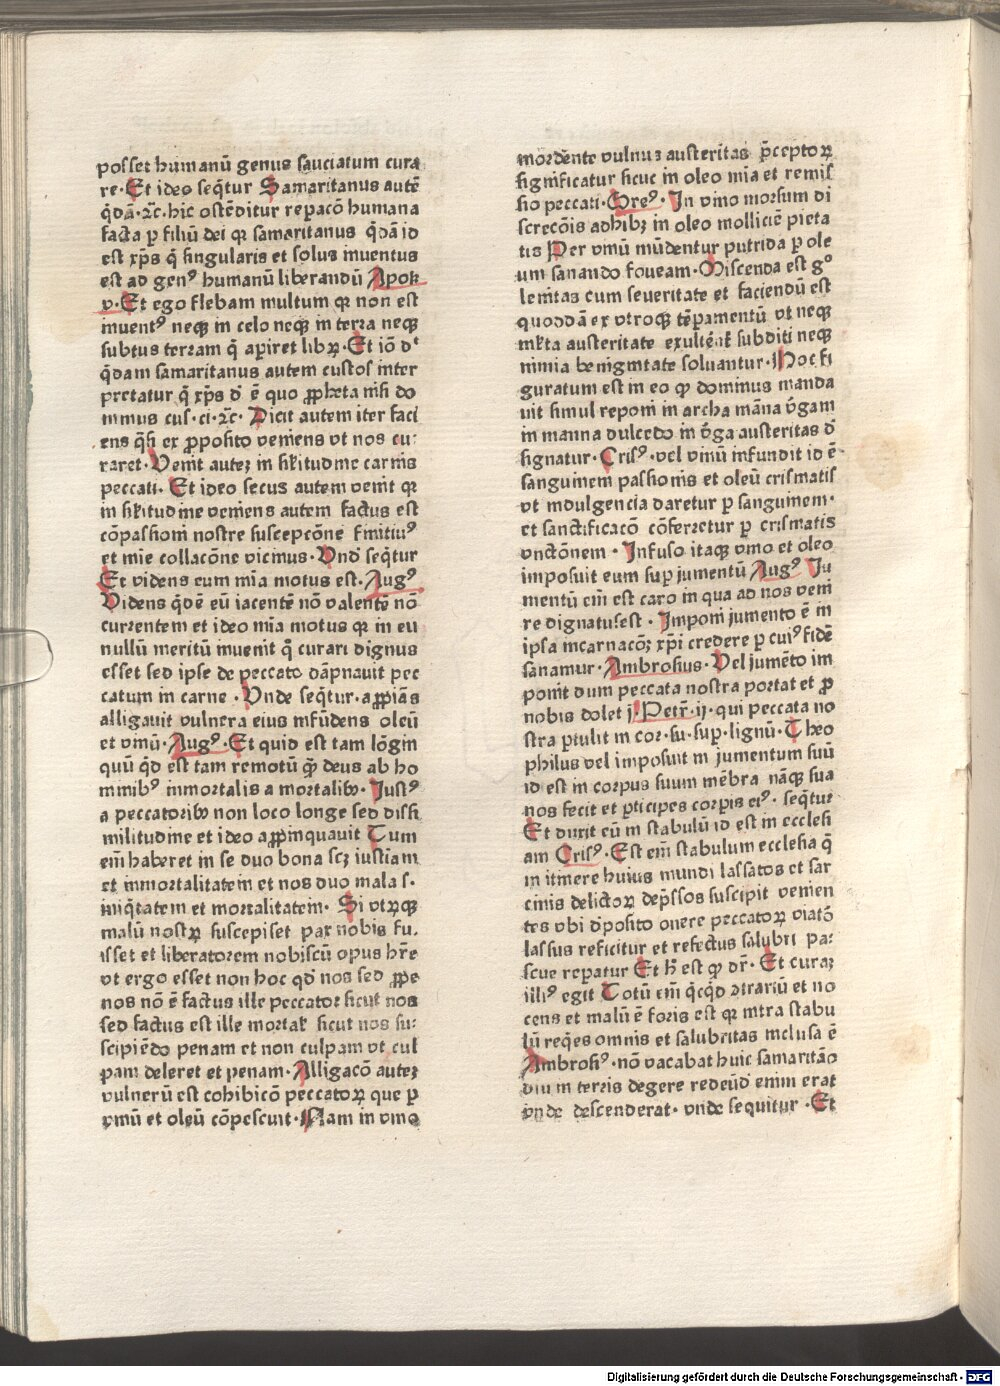 posset humanū genus sauciatum cura
re·Et ideo seq̄tur Samaritanus autē
q̄dā·⁊c̄·hic ostēditur repacō humana
facta ꝑ filiū dei qꝛ samaritanus q̄dā id
est xp̄s q̄ singularis et solus inuentus
est ad genꝰ humanū liberandū Apok
v·Et ego flebam multum qꝛ non est
inuentꝰ neqꝫ in celo neqꝫ in terra neqꝫ
subtus terram q̄ aꝑiret libꝝ·Et iō dꝭ
q̄dam samaritanus autem custos inter
pretatur q̄ xp̄s ē de quo ꝓpheta nisi do
minus cus·ci·⁊c̄· Dicit autem iter faci
ens q̄si ex ꝓposito veniens vt nos cu:
raret·Venit auteꝫ in silitudine carnis
peccati· Et ideo secus autem venit qꝛ
in silitudine veniens autem factus est
cōpassioni nostre suscepcōne finitiuꝰ
et mie collacōne vicinus·Vnd seq̄tur
Et videns eum mīa motus est·Augꝰ
Videns q̄dē eū iacentē nō valentē nō
currentem et ideo mīa motus qꝛ in eu
nullū meritū inuenit q̄ curari dignus
esset sed ipse de peccato dāpnauit pec
catum in carne ·Vnde seq̄tur·appiās
alligauit vulnera eius infūdens oleū
et vinū·Augꝰ·Et quid est tam lōgin
quū q̄d est tam remotū q̄ꝫ deus ab ho
minibꝰ inmortalis a mortalibꝰ·Justꝰ
a peccatoribꝰ non loco longe sed dissi
militudine et ideo apꝓinquauit Cum
em̄ haberet in se duo bona scꝫ iustiam
et inmortalitatem et nos duo mala s·
iniq̄tatem et mortalitatem· Si vtrqꝫ
malū nostꝝ suscepiset par nobis fu:
isset et liberatorem nobiscū opus hr̄e
vt ergo esset non hoc qd̄ nos sed ꝓpe
nos nō ē factus ille peccator sicut nos
sed factus est ille mortal' sicut nos su:
scipiēdo penam et non culpam vt cul
pam deleret et penam·Alligacō auteꝫ
vulnerū est cohibicō peccatoꝝ que ꝑ
vinū et oleū cōpescuit·Nam in vino
mordente vulnus austeritas p̄ceptoꝝ
significatur sicut in oleo mīa et remis
sio peccati·Greꝰ·In vino morsum di
screcōis adhibꝫ in oleo molliciē pieta
tis Per vinū mūdentur putrida ꝑ ole
um sanando foueam·Miscenda est gͦ
lenitas cum seueritate et faciendū est
quoddā ex vtroqꝫ tēpamentū vt neqꝫ
mĺta austeritate exulcerēt subditi neqꝫ
nimia benignitate soluantur·Hoc fi
guratum est in eo ꝙ dominus manda
uit simul reponi in archa māna v̄gam
in manna dulcedo in v̄ga austeritas d̄
signatur·Crisꝰ·vel vinū infundit id ē
sanguinem passionis et oleū crismatis
vt indulgencia daretur ꝑ sanguinem·
et sanctificacō cōferretur ꝑ crismatis
vnctōnem · Infuso itaqꝫ vino et oleo
imposuit eum suꝑ jumentū Augꝰ Ju
mentū em̄ est caro in qua ad nos veni
re dignatus est ·Imponi jumento ē in
ipsa incarnacōꝫ xp̄i credere ꝑ cuiꝰ fidē
sanamur·Ambrosius·Vel jumēto im
ponit dum peccata nostra portat et ꝓ
nobis dolet j·Petr̄·ij·qui peccata no
stra ꝑtulit in cor·su·sup·lignū·Theo
philus vel imposuit in jumentum suū
id est in corpus suum mēbra nāqꝫ sua
nos fecit et ꝑticipes corꝑis eiꝰ· seq̄tur
Et duxit eū in stabulū id est in ecclesi
am Crisꝰ·Est em̄ stabulum ecclesia q̄
in itinere huius mundi lassatos et sar
cinis delictoꝝ dep̄ssos suscipit venien
tes vbi d̄posito onere peccatoꝝ viatō
lassus reficitur et refectus salubri pa:
scue reparatur Et h̄ est ꝙ dr̄·Et curaꝫ
illiꝰ egit Totū em̄ q̄cq̄d ꝯtrariū et no
cens et malū ē foris est qꝛ intra stabu
lū req̄es omnis et salubritas inclusa ē
Ambrosꝰ·nō vacabat huic samaritāo
diu in terris degere redeūd enim erat
vnde descenderat· vnde sequitur ·Et
Digitalisierung gefördert durch die Deutsche Forschungsgemeinschaft - DFG